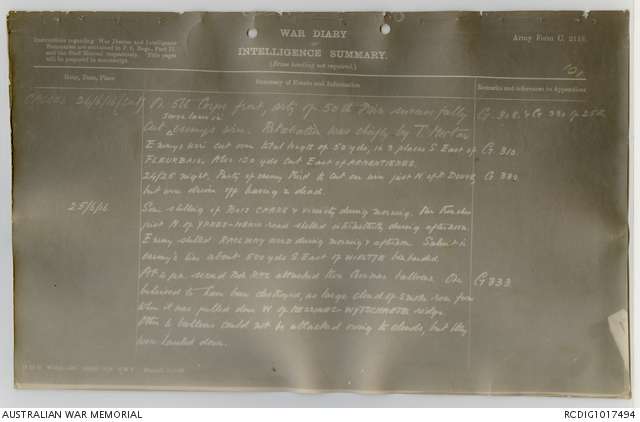 Army Form C. 2118.
WAR DIARY
or
INTELLIGENCE SUMMARY.
(Erase heading not required.)
Instructions regarding War Diaries and Intelligence
Summaries are contained in F. S. Regs., Part II.
and the Staff Manual respectively. Title pages
will be prepared in manuscript.
Hour, Date, Place
Summary of Events and Information
Remarks and references to Appendices
CASSEL 24/6/16 On 5th Corps front, arty of 50th Divn successfully
G. 308
some lanes in
cut enemys wire. Retaliation was chiefly by T. Mortars
Enemys wire cut over total length of 50 yds, in 3 places S. East of G. 310.
FLEURBAIX. Also 120 yds cut East of ARMENTIERES.
24/25 night. Party of enemy tried to cut our wire just N. of R. DOUVE, G. 330
but were driven off leaving 2 dead.
25/6/16 Some shelling of BOIS CARRE & vicinity during morning. Our trenches
just N. of YPRES-MENIN road shelled intermittently during afternoon.
Enemy shelled RAILWAY WOOD during morning & afternoon. Salient in
enemy's line about 500 yds S. East of WIELTJE bombarded.
At 4 pm second Bde RFC attacked three German balloons. One G 333
believed to have been destroyed, as large cloud of smoke rose from
where it was pulled down W. of MESSINES-WYTSCHAETE ridge.
Other 2 balloons could not be attacked owing to clouds, but they
were hauled down.
AUSTRALIAN WAR MEMORIAL
RCDIG1017494